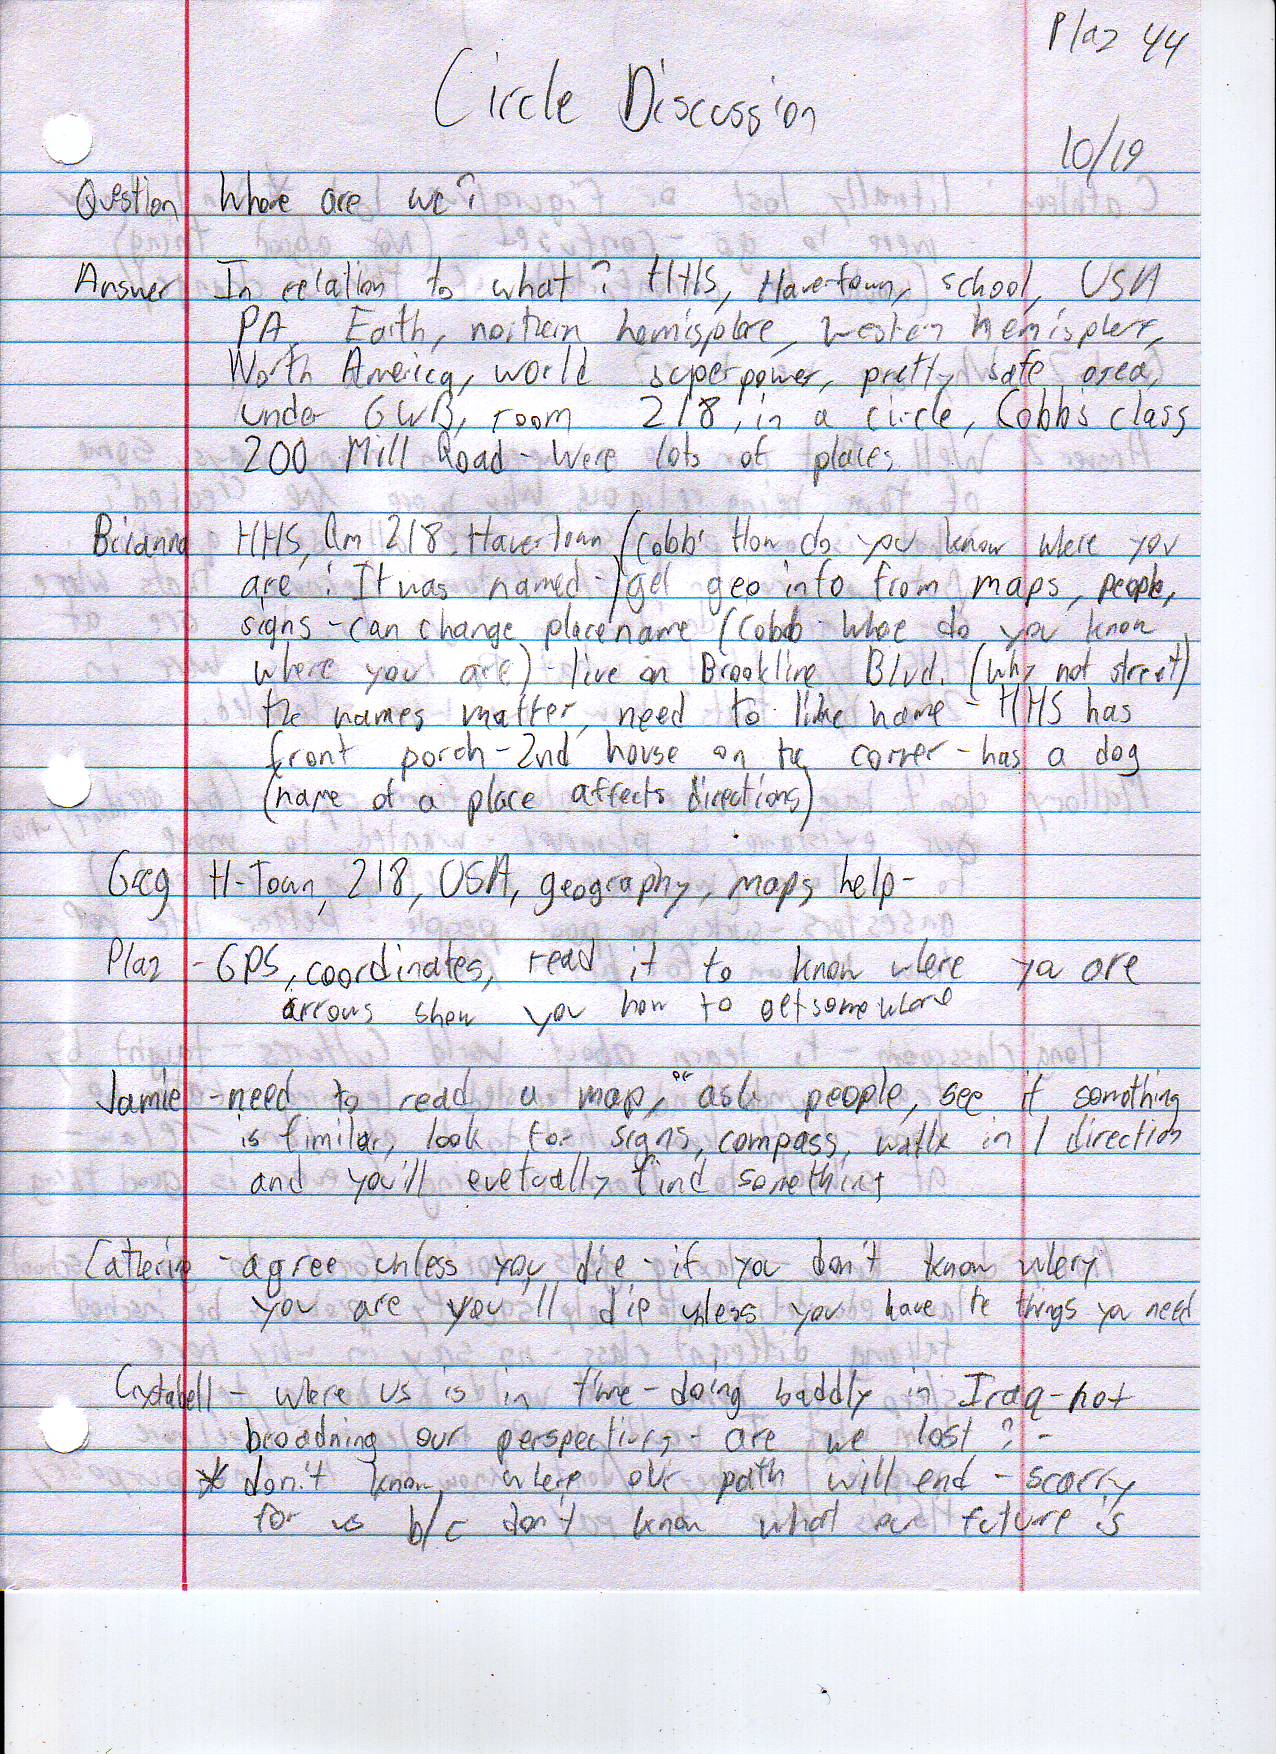 Plaz 44
Circle Discussion
10/19
Question Where are we?
Answer In relation to what? HHS, Havertown, school, USA
PA, Earth, northern hemisphere, western hemisphere,
North America, world superpower, pretty safe area,
under GWB, room 218, in a circle, Cobb's class
200 Mill Road - Were lots of places
Brianna HHS, Rm 218, Havertown (Cobb: How do you know where you
are? It was named - get geo info from maps, people,
signs - can change place name (Cobb - Whoe do you know
where you are) - live on Brookline Blvd. (why not street)
the names matter, need to like name - HHS has
front porch - 2nd house on the corner - has a dog
(name of a place affects directions)
Greg H-Town, 218, USA, geography, maps help -
Plaz - GPS, coordinates, read it to know where ya are
arrows show you how to get somewhere
Jamie - need to read a map, or ask people, see if something
is fimilar, look for signs, compass, walk in 1 direction
and you'll evetually find something
Catherin - agree unless you die - if you don't know where
you are you'll die unless you have the things you need
Crystabell - where us is in time - doing baddly in Iraq - not
broadning our perspectives - are we lost? -
* don't know where our path will end - scarry
for us b/c don't know what our future is